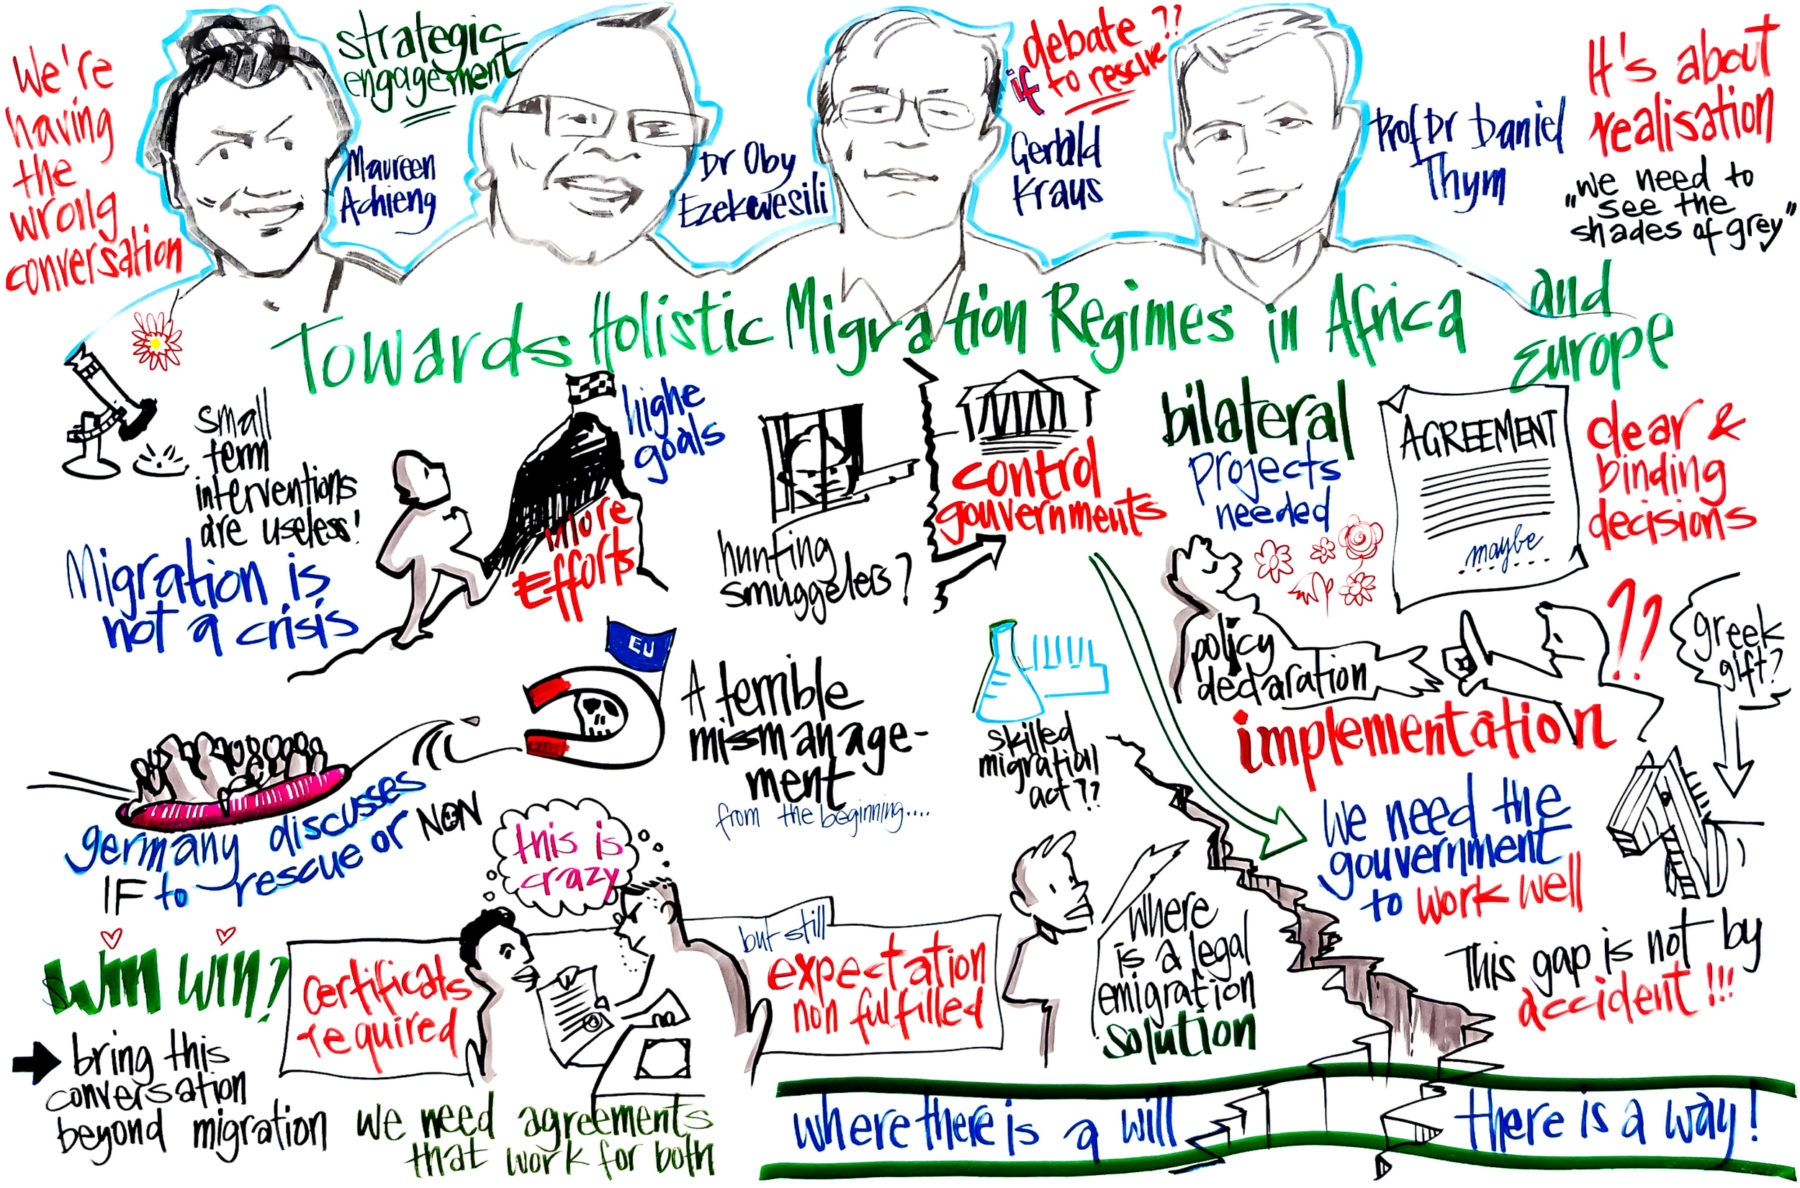 We're
having
the
wrong
conversation
strategic
engagement
Maureen
Achieng
Dr Oby
Ezekwesili
debate ??
if to rescue
Gerald
Kraus
Prof Dr Daniel
Thym
It's about
realisation
"we need to
see the
shades of grey"
Towards Holistic Migration Regimes in Africa and
Europe
small
term
interventions
are useless!
Migration is
not a crisis
highe
goals
more
Efforts
hunting
smuggelers?
control
gouvernments
bilateral
projects
needed
AGREEMENT
...maybe...
clear &
binding
decisions
policy
declaration
??
implementation
greek
gift?
EU
A terrible
mismanage-
ment
from the beginning....
skilled
migration
act??
germany discusses
IF to rescue or NON
this is
crazy
We need the
gouvernment
to work well
This gap is not by
accident!!!
win win?
bring this
conversation
beyond migration
certificats
required
but still
expectation
non fulfilled
where
is a legal
emigration
solution
we need agreements
that work for both
where there is a will
there is a way!